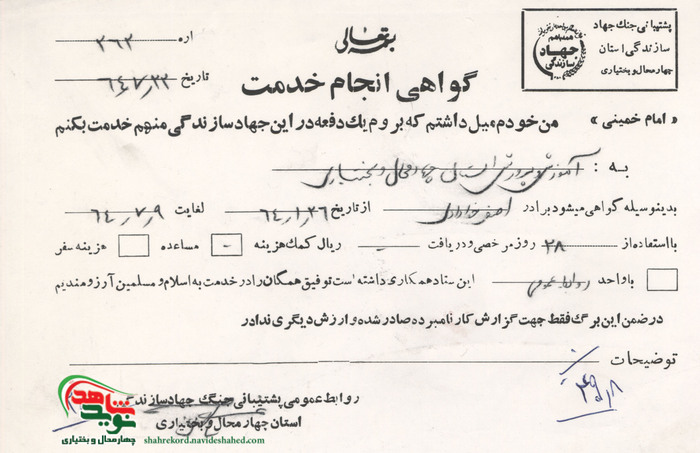 بسمه تعالی
پشتیبانی جنگ جهاد
سازندگی استان
چهارمحال و بختیاری
همه باهم
جهاد
سازندگی
اره ۲۶۲
تاریخ ۶۴٫۷٫۲۲
گواهی انجام خدمت
« امام خمینی » من خودم میل داشتم که بروم یك دفعه در این جهاد سازندگی منهم خدمت بکنم
به : آموزش و پرورش استان چهارمحال و بختیاری
بدینوسیله گواهی میشود برادر اصغر از تاریخ ۶۴٫۱٫۲۶ لغایت ۶۴٫۷٫۹
با استفاده از ۲۸ روز مرخصی و دریافت ریال کمك هزینه - مساعده هزینه سفر
با واحد روابط عمومی این ستاد همکاری داشته است توفیق همگان را در خدمت به اسلام و مسلمین آرزومندیم
در ضمن این برگ فقط جهت گزارش کار نامبرده صادر شده و ارزش دیگری ندارد
توضیحات
روابط عمومی پشتیبانی جنگ جهاد سازندگی
استان چهارمحال و بختیاری
نوید شاهد
چهارمحال و بختیاری
shahrekord.navideshahed.com